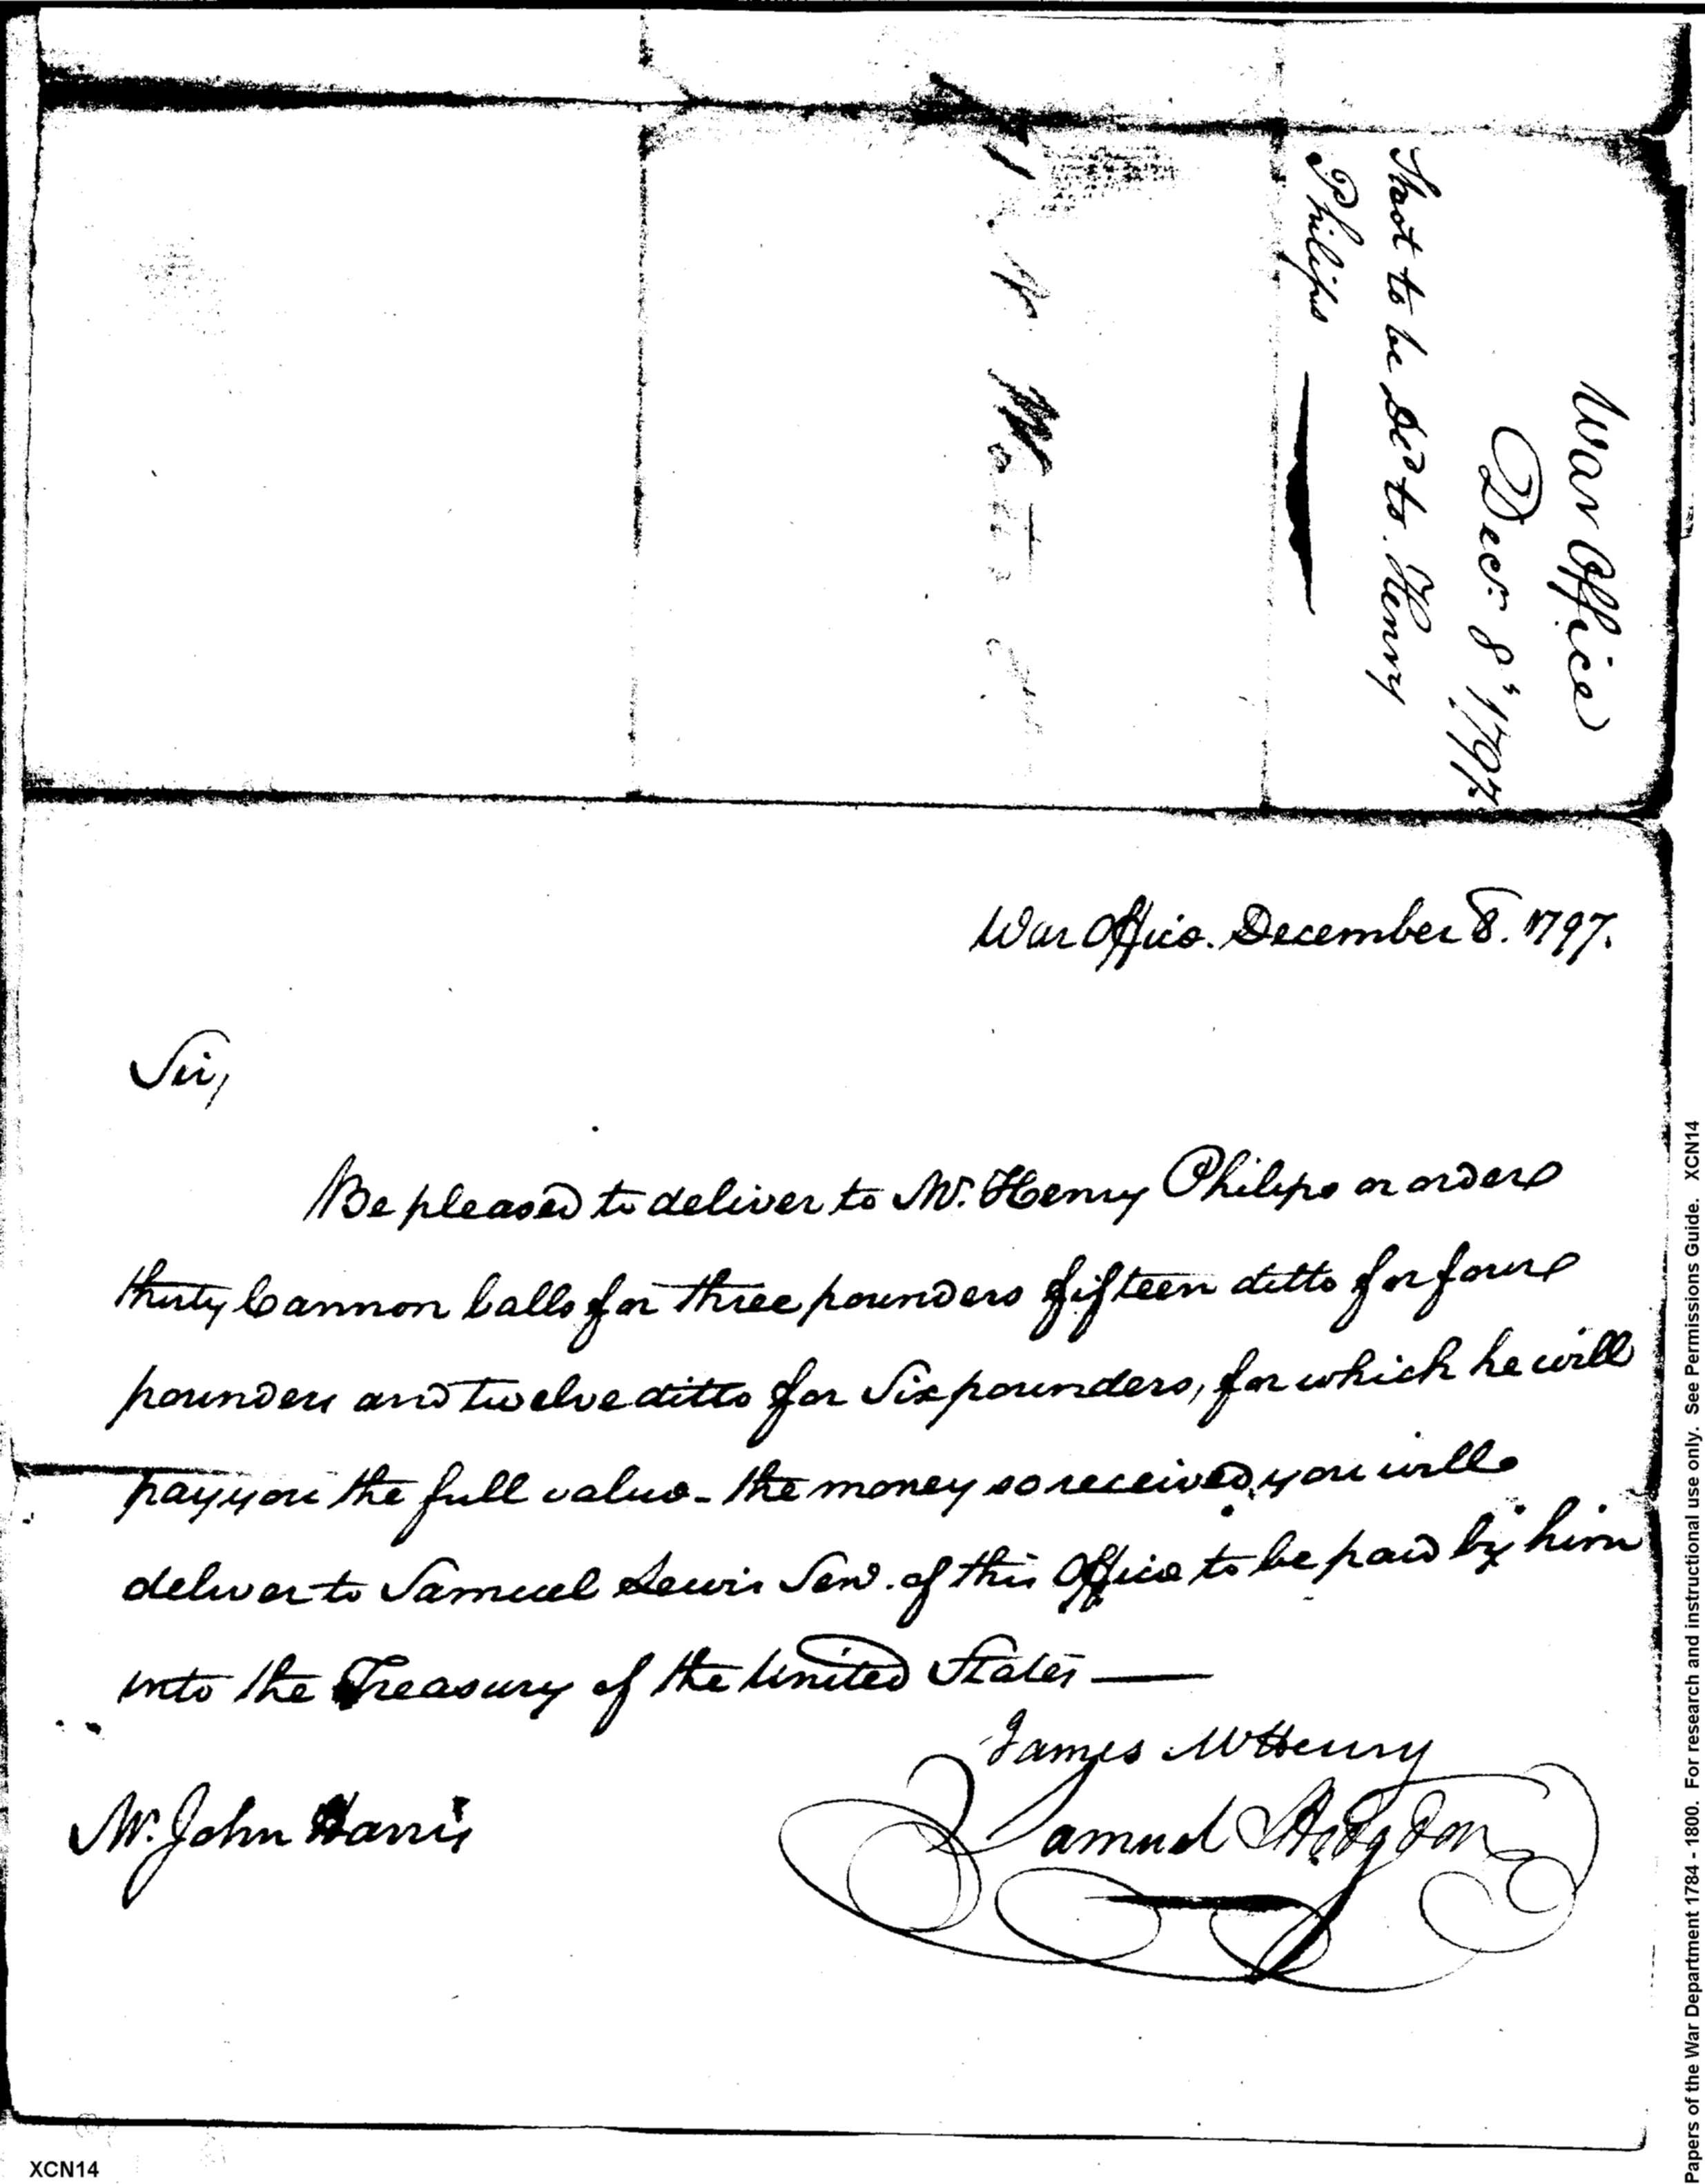 War Office
Decr. 8" 1797
Shot to be Del'd to Henry
Philips
War Office. December 8. 1797.
Sir,
Be pleased to deliver to Mr. Henry Philips or order
thirty Cannon balls for three pounders fifteen ditto for four
pounders and twelve ditto for Six pounders, for which he will
pay you the full value - the money so received, you will
deliver to Samuel Lewis Senr. of this Office to be paid by him
into the Treasury of the United States —
James McHenry
Samuel Hodgdon
Mr. John Harris
Papers of the War Department 1784 - 1800. For research and instructional use only. See Permissions Guide. XCN14
XCN14